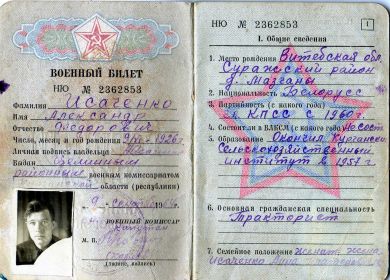 ВОЕННЫЙ БИЛЕТ
НЮ № 2362853
Фамилия Исаченко
Имя Александр
Отчество Федорович
Число, месяц и год рождения 1926 г.
Личная подпись владельца
Выдан
районным военным комиссариатом
области (республики)
9 1964 г.
ВОЕННЫЙ КОМИССАР
М. П.
(звание, подпись)
НЮ № 2362853
1
I. Общие сведения
1. Место рождения Витебская обл.
Суражский район
д. Мазганы
2. Национальность Белорусс
3. Партийность (с какого года)
чл. КПСС с 1960 г.
4. Состоял ли в ВЛКСМ (с какого года) Не сост.
5. Образование Окончил Курганский
Сельскохозяйственный
институт в 1957 г.
6. Основная гражданская специальность
Тракторист
7. Семейное положение Женат, жена
Исаченко